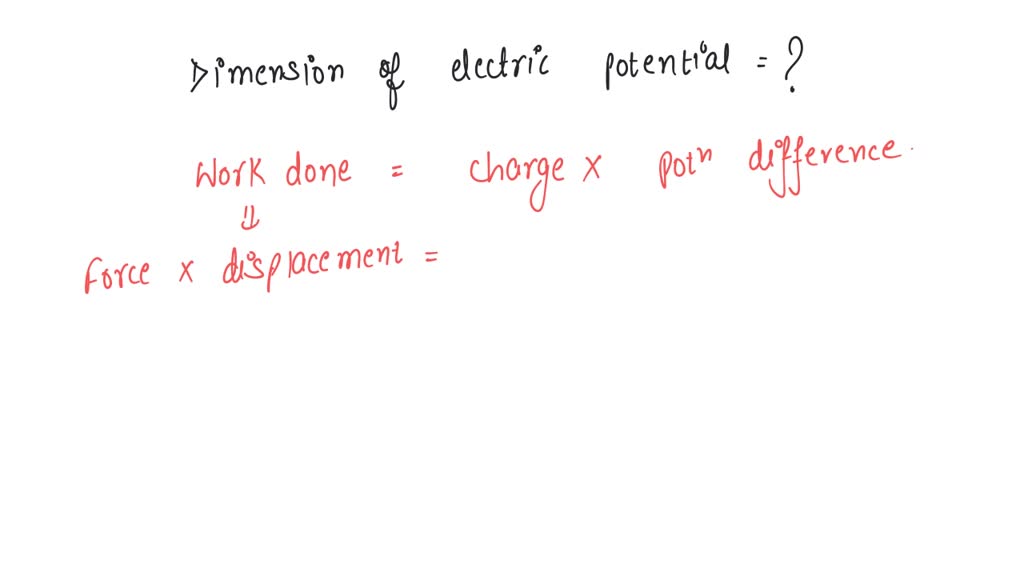 Dimension of electric potential = ?
Work done = charge x potn difference.
⇓
Force x displacement =